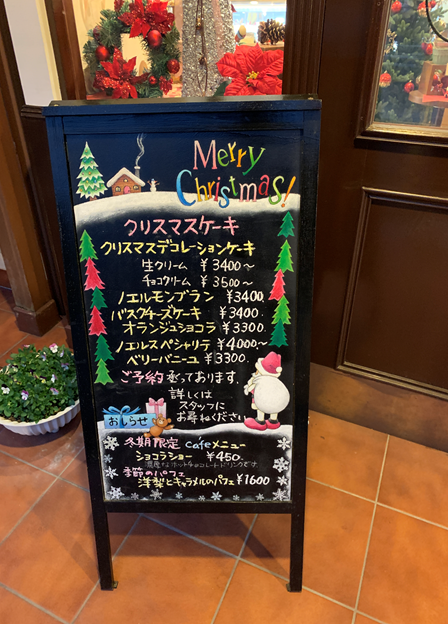 Merry
Christmas!
クリスマスケーキ
クリスマスデコレーションケーキ
生クリーム ¥3400〜
チョコクリーム ¥3500〜
ノエルモンブラン ¥3400.
バスクチーズケーキ ¥3400.
オランジュショコラ ¥3300.
ノエルスペシャリテ ¥4000〜
ベリーバニーユ ¥3300.
ご予約承っております。
詳しくは
スタッフに
お尋ねください
おしらせ
冬期限定 cafeメニュー
ショコラショー ¥450.
濃厚なホットチョコレートドリンクです
季節のパフェ
洋梨とキャラメルのパフェ ¥1600